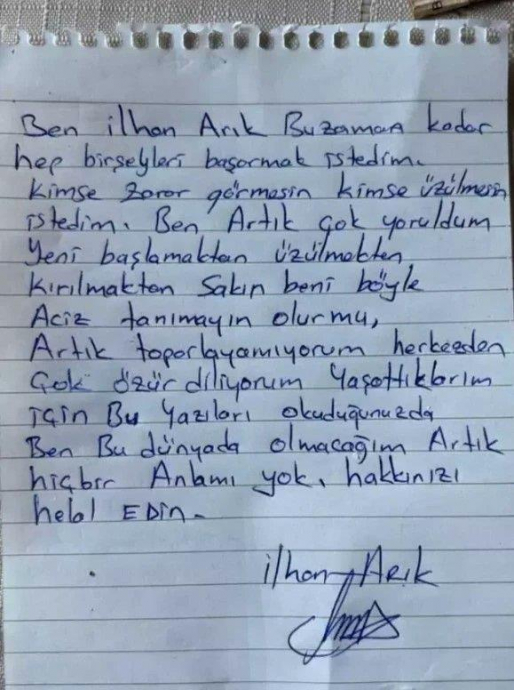 Ben ilhan Arık Bu zaman kadar
hep birşeyleri başarmak istedim.
Kimse zarar görmesin kimse üzülmesin
istedim. Ben Artık çok yoruldum
Yeni başlamaktan üzülmekten
Kırılmaktan Sakın beni böyle
Aciz tanımayın olurmu,
Artık toparlayamıyorum herkezden
Çok özür diliyorum Yaşattıklarım
için Bu Yazıları okuduğunuzda
Ben Bu dünyada olmacağım Artık
hiçbir Anlamı yok, hakkınızı
helal EDin.
ilhan Arık